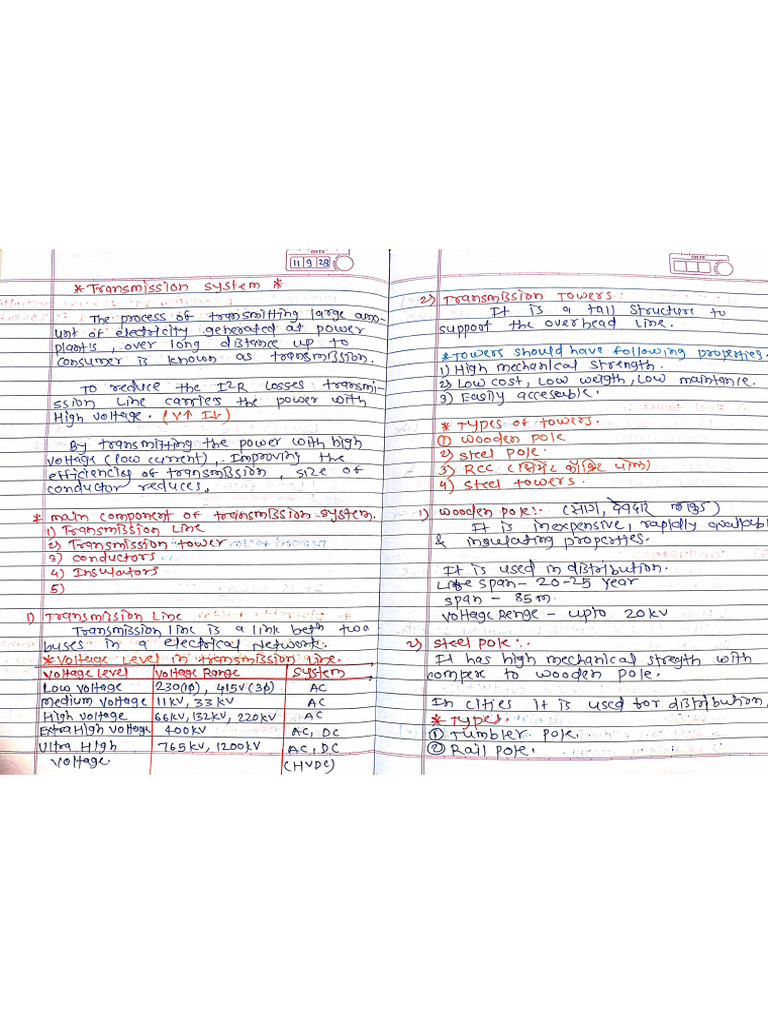 DATE
11 9 23
* Transmission system *
The process of transmitting large amo-
unt of electricity generated at power
plants, over long distance up to
consumer is known as transmission.
To reduce the I2R losses transmi-
ssion Line carries the power with
High voltage. (V↑ I↓)
By transmitting the power with high
voltage (low current), Improving the
efficiency of transmission, size of
conductor reduces.
* main component of transmission system.
1) Transmission Line
2) Transmission tower
3) conductors
4) Insulators
5)
1) Transmission Line
Transmission line is a link betn two
buses in a electrical Network.
* Voltage Level in transmission Line.
Voltage Level Voltage Range System
Low voltage 230(1ϕ), 415V(3ϕ) AC
medium voltage 11kV, 33kV AC
High voltage 66kV, 132kV, 220kV AC
Extra High voltage 400kV AC, DC
Ultra High 765kV, 1200kV AC, DC
voltage (HVDC)
DATE
2) Transmission Towers:
It is a tall structure to
support the overhead line.
* Towers should have following properties.
1) High mechanical strength.
2) Low cost, Low weigth, Low maintence.
3) Easily accesable.
* Types of towers.
① wooden pole
2) Steel pole.
3) RCC (सिमेंट काँक्रिट पोल)
4) Steel towers.
1) wooden pole:- (साग, देवदार लाकुड)
It is inexpensive, rapidly available
& insulating properties.
It is used in distribution.
Life span- 20-25 Year
span - 85m.
voltage Range - upto 20kV
2) Steel pole:-
It has high mechanical stregth with
comper to wooden pole.
In cities it is used for distribution
* Types.
① Tumbler pole.
② Rail pole.